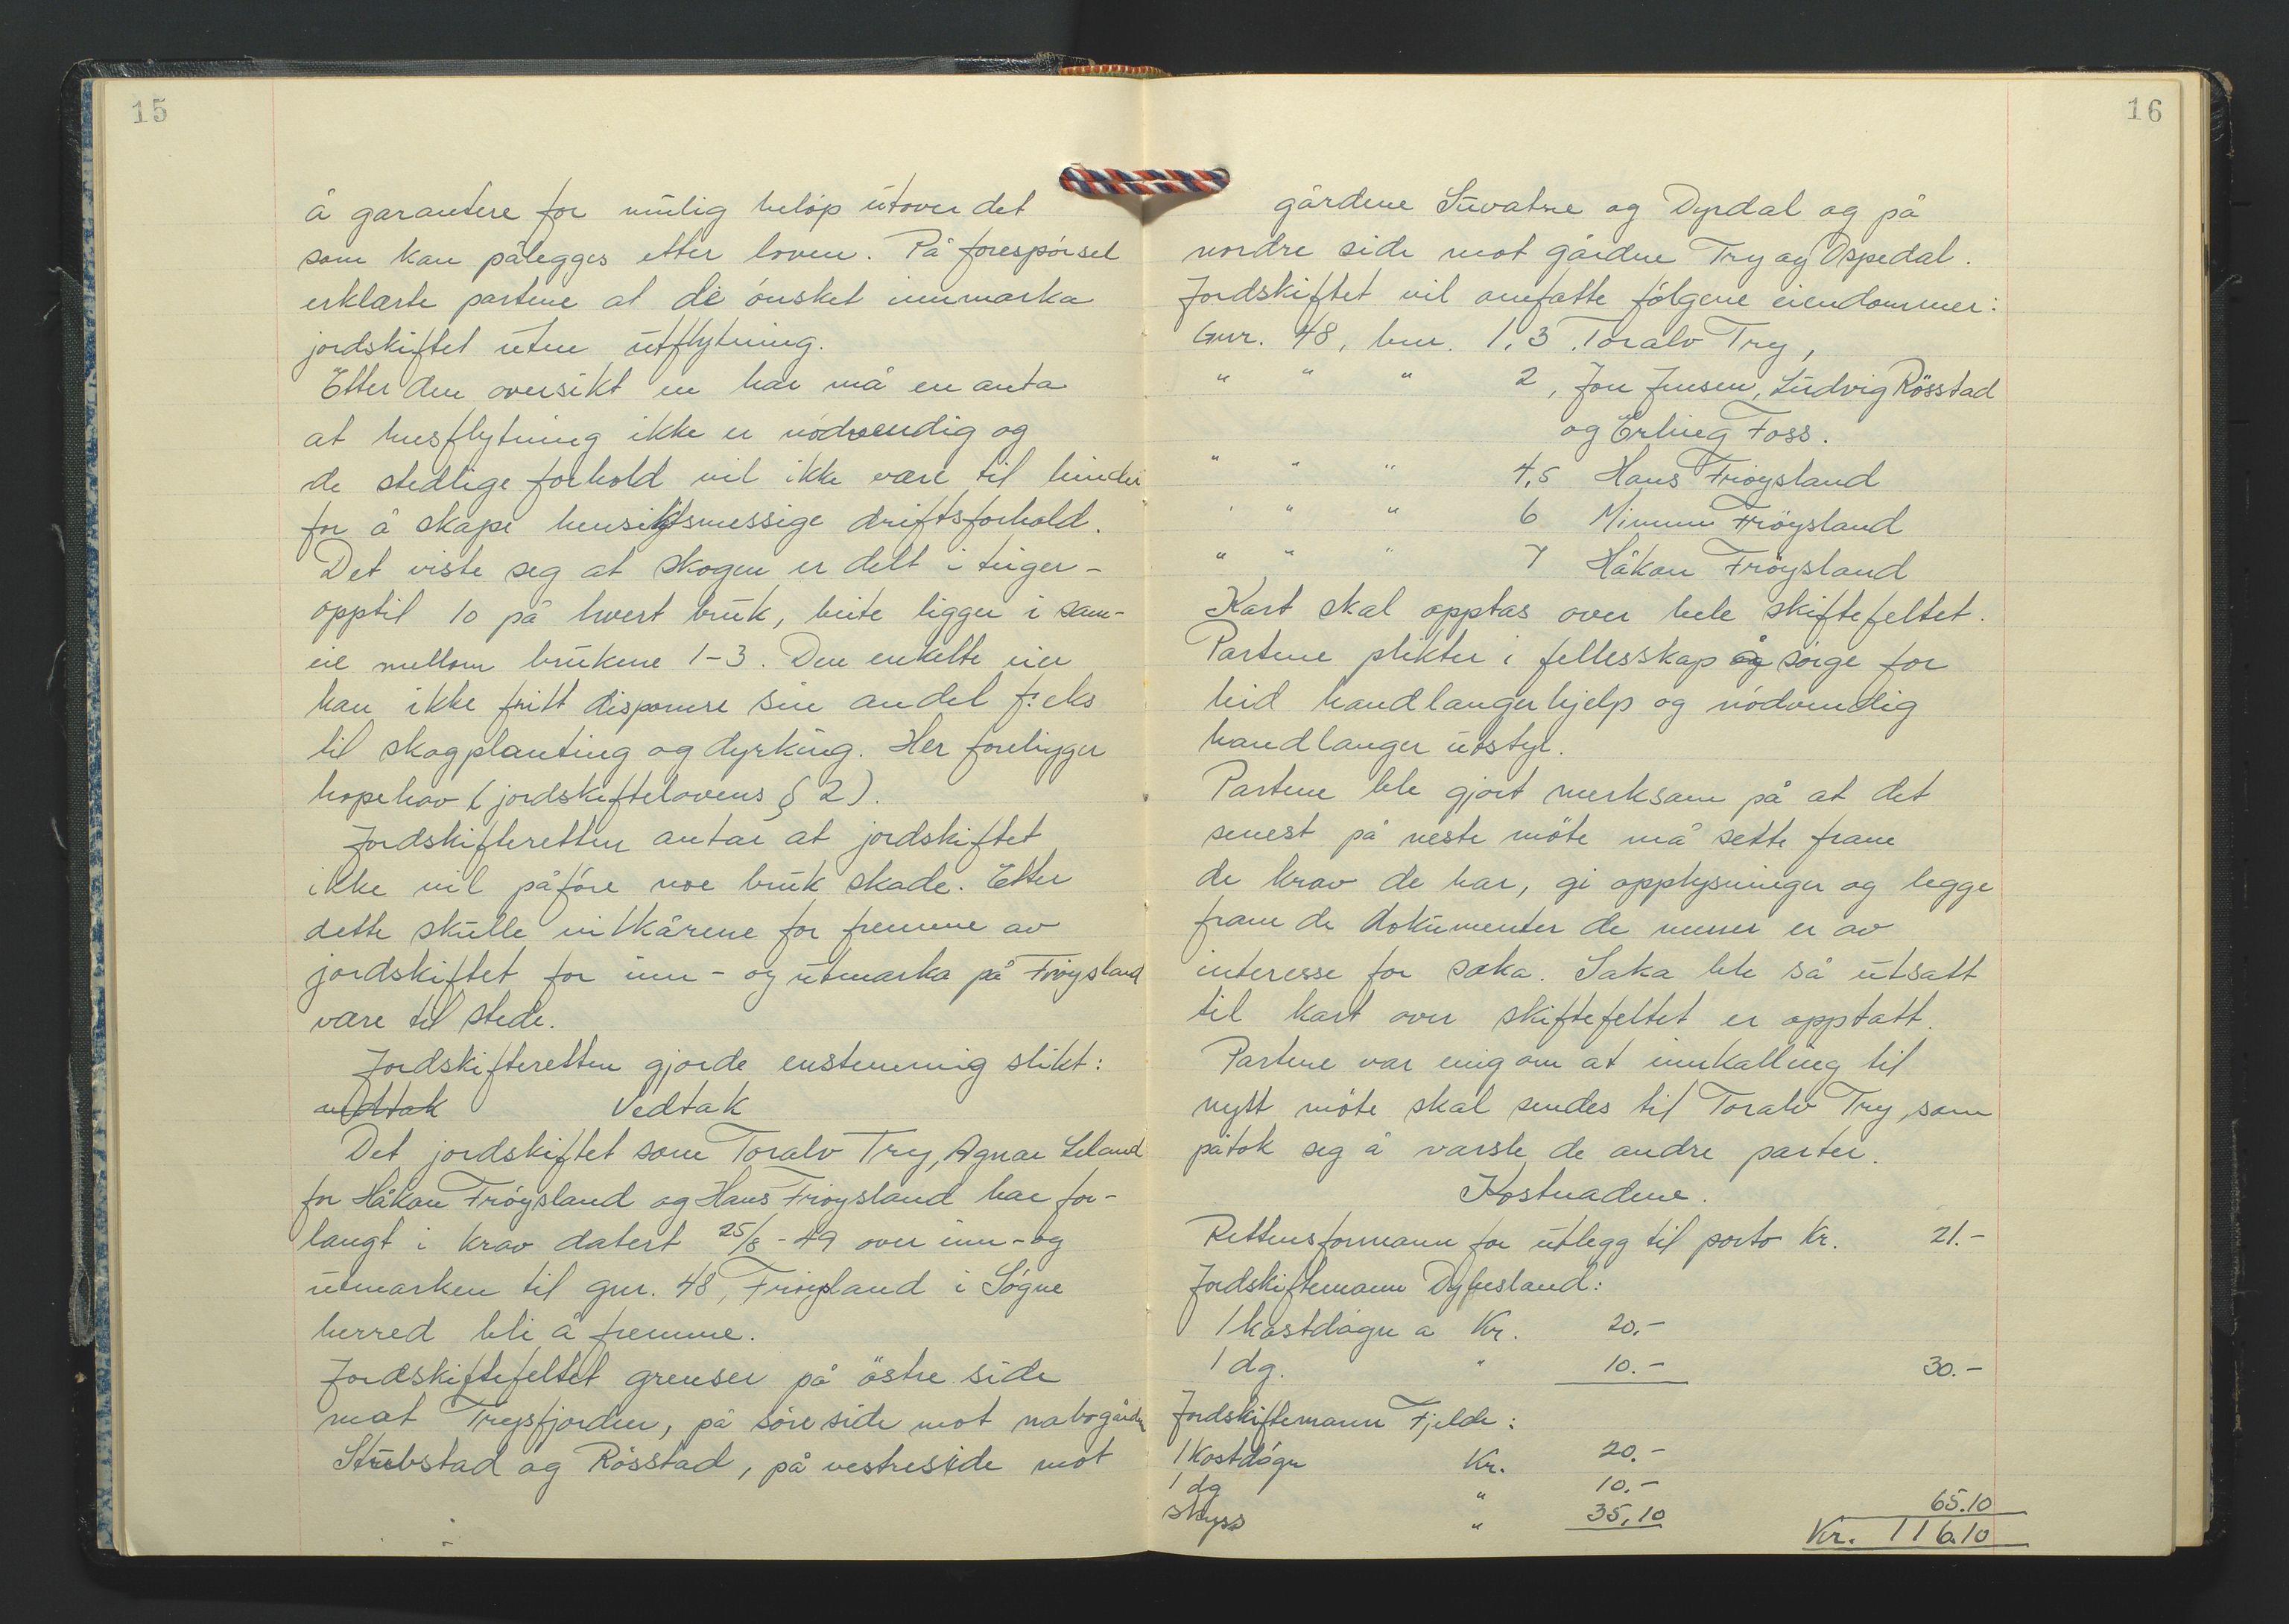 15
å garantere for mulig beløp utover det
som kan pålegges etter loven. På forespørsel
erklærte partene at de ønsket innmarka
jordskiftet uten utflytning.
Etter den oversikt en har må en anta
at husflytning ikke er nødvendig og
de stedlige forhold vil ikke være til hinder
for å skape hensiktsmessige driftsforhold.
Det viste seg at skogen er delt i teiger -
opptil 10 på hvert bruk, beite ligger i sam-
eie mellom brukene 1-3. Den enkelte eier
kan ikke fritt disponere sin andel f: eks
til skogplanting og dyrking. Her foreligger
hopehav (jordskiftelovens § 2).
Jordskifteretten antar at jordskiftet
ikke vil påføre noe bruk skade. Etter
dette skulle vilkårene for fremme av
jordskiftet for inn- og utmarka på Frøysland
være til stede.
Jordskifteretten gjorde enstemmig slikt:
vedtak Vedtak
Det jordskiftet som Toralv Try, Agnar Leland
for Håkon Frøysland og Hans Frøysland har for-
langt i krav datert 25/8-49 over inn- og
utmarken til gnr. 48, Frøysland i Søgne
herred bli å fremme.
Jordskiftefeltet grenser på östre side
mot Trysfjorden, på søre side mot nabogården
Stubstad og Røsstad, på vestreside mot
16
gårdene Suvatne og Dyrdal og på
nordre side mot gårdene Try og Ospedal.
Jordskiftet vil omfatte følgene eiendommer:
Gnr. 48, bnr. 1,3. Toralv Try,
" " " 2, Jon Jensen, Ludvig Rösstad
og Erling Foss.
" " " 4,5 Hans Frøysland
" " " 6 Mimmi Frøysland
" " " 7 Håkon Fröysland
Kart skal opptas over hele skiftefeltet.
Partene plikter i fellesskap å sørge for
leid handlangerhjelp og nødvendig
handlanger utstyr.
Partene ble gjort merksam på at det
senest på neste möte må sette fram
de krav de har, gi opplysninger og legge
fram de dokumenter de mener er av
interesse for saka. Saka ble så utsatt
til kart over skiftefeltet er opptatt.
Partene var enig om at innkalling til
nytt möte skal sendes til Toralv Try, som
påtok seg å varsle de andre parter.
Kostnadene.
Rettensformann for utlegg til porto Kr. 21.-
Jordskiftemann Dybesland:
1 kostdøgn a Kr. 20.-
1 dg. " 10.- 30.-
Jordskiftemann Fjelde:
1 Kostdøgn Kr. 20.-
1 dg " 10.-
Skyss " 35,10 65.10
Kr. 116.10